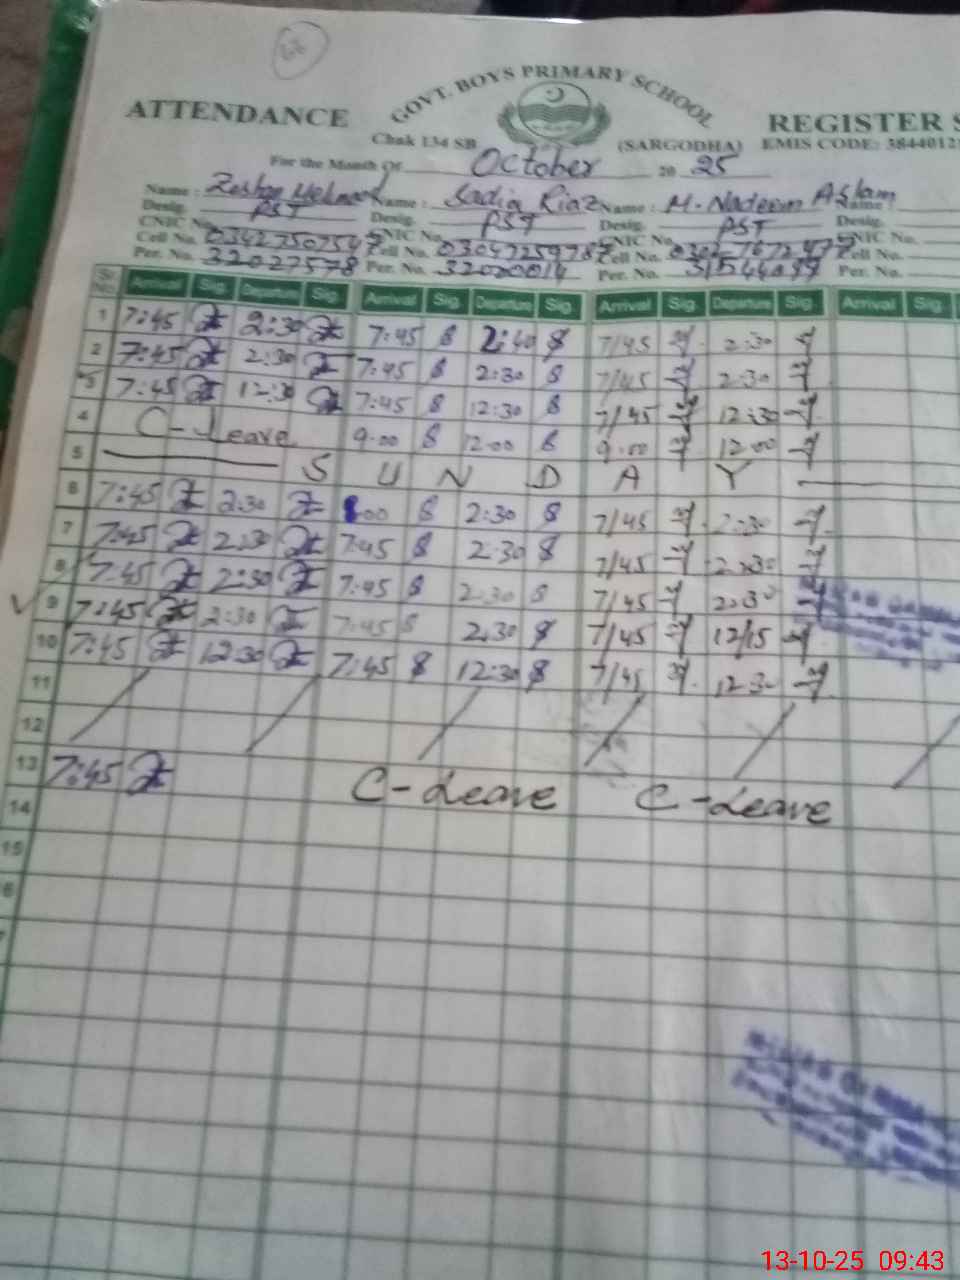 GOVT. BOYS PRIMARY SCHOOL
ATTENDANCE REGISTER S
Chak 134 SB (SARGODHA) EMIS CODE: 3844012
For the Month Of October 20 25
Name : Name : Sadia Riaz Name : M. Nadeem Aslam Name :
Desig. PST Desig. PST Desig. PST Desig.
CNIC No. CNIC No. CNIC No. CNIC No.
Cell No. 03427507547 Cell No. Cell No. Cell No.
Per. No. 32027578 Per. No. 32020014 Per. No. Per. No.
Sr. No. Arrival Sig. Departure Sig. Arrival Sig. Departure Sig. Arrival Sig. Departure Sig. Arrival Sig.
1 7:45 2:30 7:45 S 2:40 S 7/45 2:30
2 7:45 2:30 7:45 S 2:30 S 7/45 2:30
3 7:45 12:30 7:45 S 12:30 S 7/45 12:30
4 C-Leave 9:00 S 12:00 S 9:00 12:00
5 S U N D A Y
6 7:45 2:30 8:00 S 2:30 S 7/45 2:30
7 7:45 2:30 7:45 S 2:30 S 7/45 2:30
8 7:45 2:30 7:45 S 2:30 S 7/45 2:30
9 7:45 2:30 7:45 S 2:30 S 7/45 12/15
10 7:45 12:30 7:45 S 12:30 S 7/45 12:30
11
12
13 7:45 C-Leave C-Leave
14
15
13-10-25 09:43